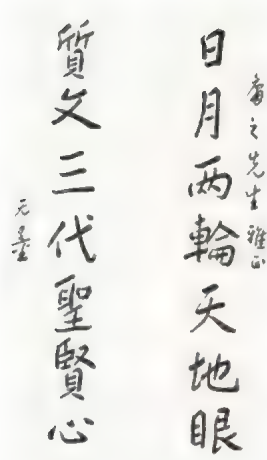 之先生雅正
日月两輪天地眼
質文三代聖賢心
无量